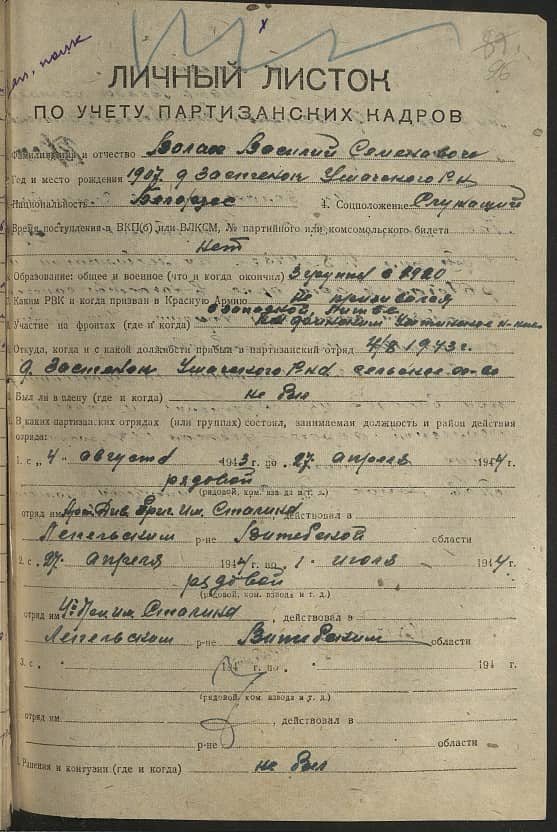 96
ЛИЧНЫЙ ЛИСТОК
ПО УЧЕТУ ПАРТИЗАНСКИХ КАДРОВ
и отчество Василий Семенович
Год и место рождения 1907 д Застенок Ушачского Р-на
Национальность 4. Соцположение Служащий
Время поступления в ВКП(б) или ВЛКСМ, № партийного или комсомольского билета
нет
Образование: общее и военное (что и когда окончил) 3 группы в 1920
Каким РВК и когда призван в Красную Армию не призывался
Участие на фронтах (где и когда)
Откуда, когда и с какой должности прибыл в партизанский отряд 4/8 1943 г.
д. Застенок Ушачского Р-на сельское
Был ли в плену (где и когда) не был
В каких партизанских отрядах (или группах) состоял, занимаемая должность и район действия
отряда:
1. с „4 августа 1943 г. по 27 апреля 1944 г.
рядовой
(рядовой, ком. взвода и т. д.)
отряд им Бриг. Им. Сталина, действовал в
Лепельском р-не Витебской области
2. с 27 апреля 1944 г. по 1 июля 1944 г.
рядовой
(рядовой, ком. взвода и т. д.)
отряд им Им. Сталина, действовал в
Лепельском р-не Витебским области
3. с 194 г. по 194 г.
(рядовой, ком. взвода и т. д.)
отряд им , действовал в
р-не области
Ранения и контузии (где и когда) не был